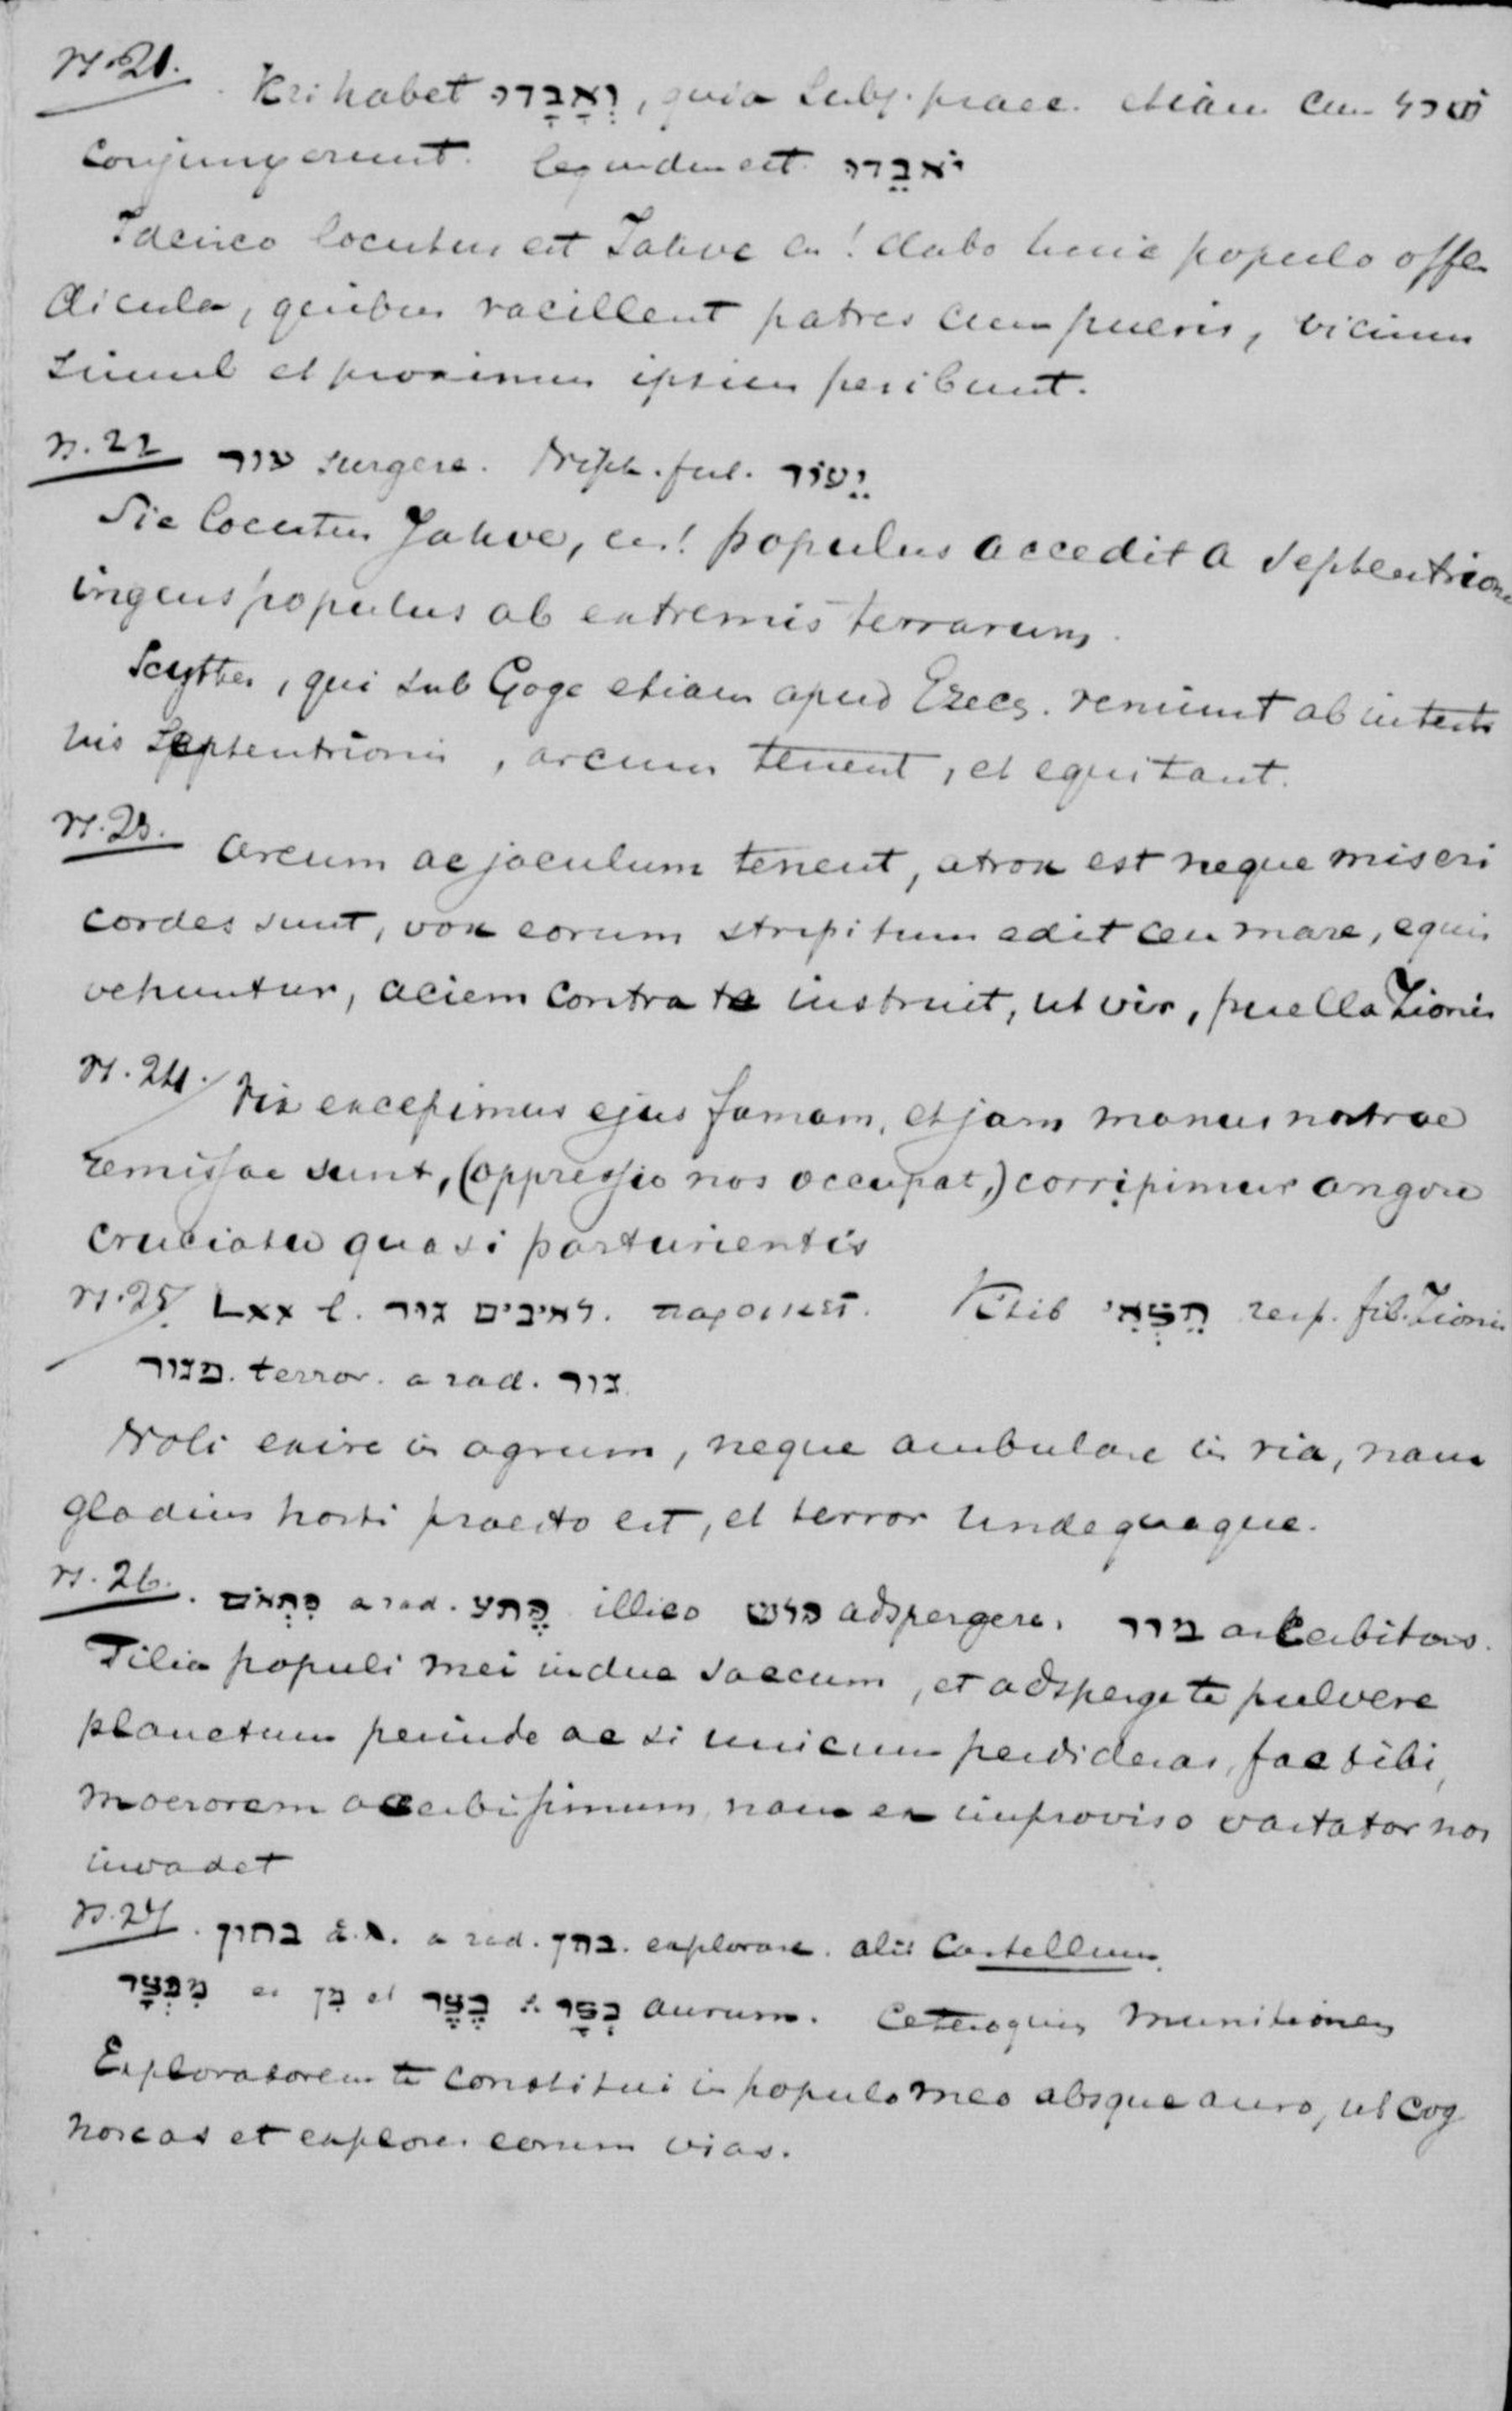 v. 21. Kri habet וְאָבָדוּ, quia Subj. praec. etiam cum כשל
conjunxerunt. legendum est יֹאבֵדוּ
Idcirco locutus est Jahve en! dabo huic populo offen
dicula, quibus vacillent patres cum pueris, vicinus
simul et proximus ipsius peribunt.
v. 22 עור surgere. Niph. fut. יֵעוֹר
Sic locutus Jahve, en! populus accedit a septentrione
ingens populus ab extremis terrarum.
Scythes, qui sub Goge etiam apud Ezech. veniunt ab
his Septentrionis, arcum tenent, et equitant.
v. 23. Arcum ac jaculum tenent, atrox est neque miseri
cordes sunt, vox eorum strepitum edit ceu mare, equis
vehuntur, aciem contra te instruit, ut vir, puella Zionis
v. 24. Vix excepimus ejus famam, et jam manus nostrae
remissae sunt, (oppressio nos occupat,) corripimur angore
cruciatu quasi parturientis
v. 25 LXX l. לאיבים גור. παροικεῖ. Ktib תֵּצְאִי resp. fil. Zionis
מגור. terror. a rad. גור.
Noli exire in agrum, neque ambulare in via, nam
gladius hosti praesto est, et terror undequaque.
v. 26. פִּתְאֹם a rad. פֶּתַע illico פלש adspergere. מרר acerbitas.
Filia populi mei indue saccum, et adsperge te pulvere
planctum perinde ac si unicum perdideras, fac tibi,
moerorem acerbissimum, nam ex improviso vastator nos
invadet
v. 27. בחון ἁ. λ. a rad. בחן. explorare. alii Castellum.
מִבְצָר ex מִן et בֶּצֶר בְּצַר aurum. Ceteroquin munitionem
Exploratorem te constitui in populo meo absque auro, ut cog
noscas et explores eorum vias.